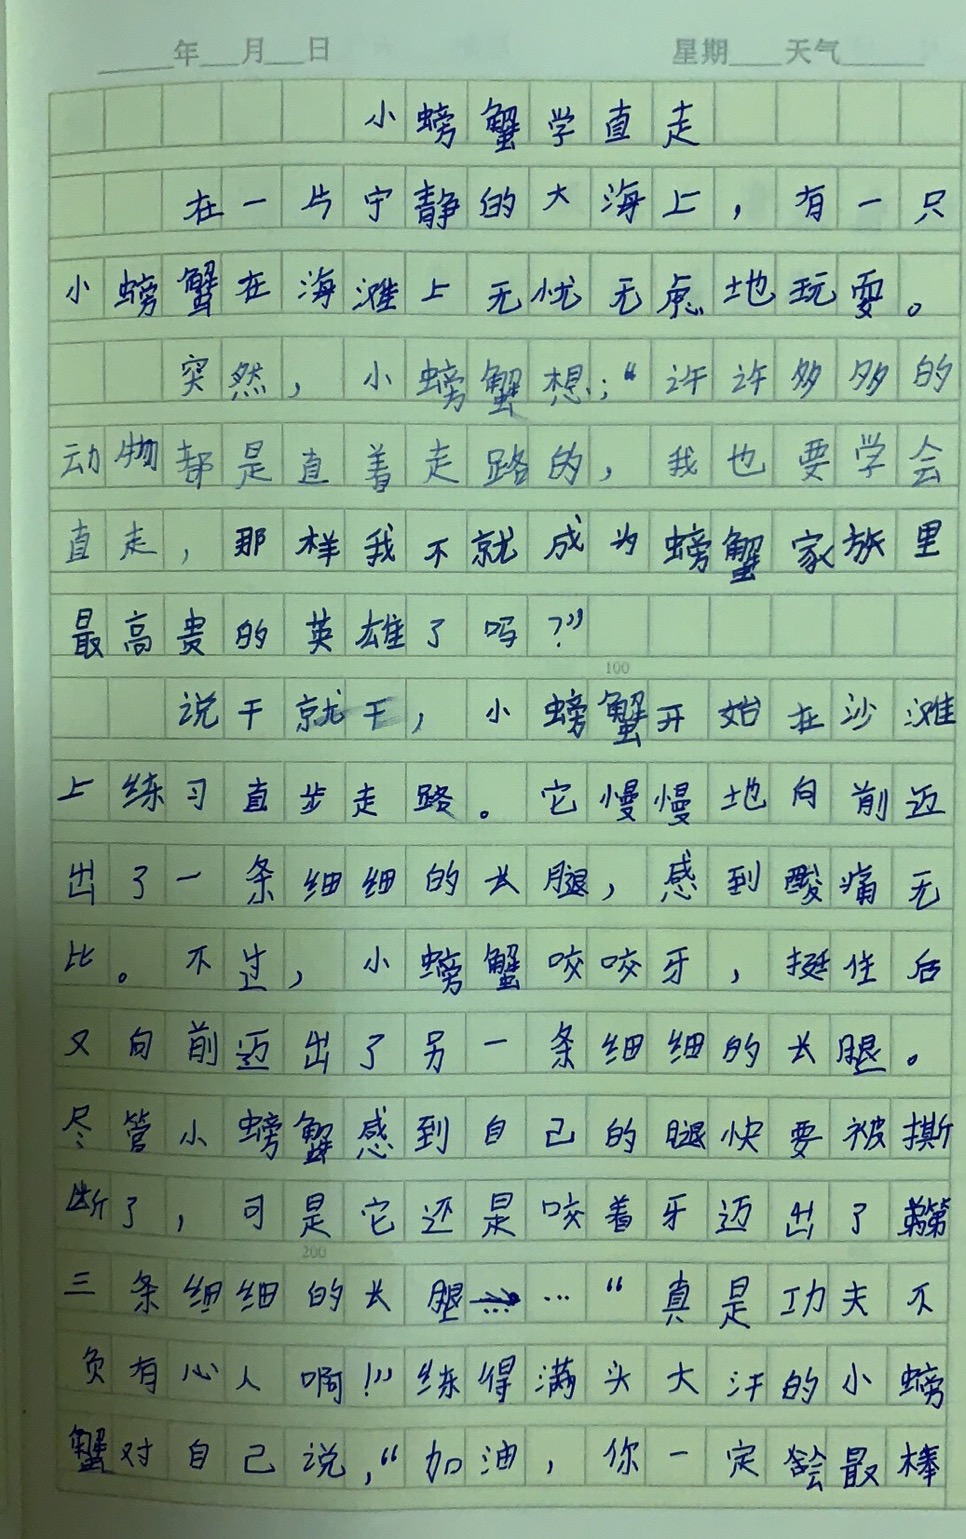 年 月 日 星期 天气
小螃蟹学直走
在一片宁静的大海上，有一只
小螃蟹在海滩上无忧无虑地玩耍。
突然，小螃蟹想：“许许多多的
动物都是直着走路的，我也要学会
直走，那样我不就成为螃蟹家族里
最高贵的英雄了吗？”
100
说干就干，小螃蟹开始在沙滩
上练习直步走路。它慢慢地向前迈
出了一条细细的长腿，感到酸痛无
比。不过，小螃蟹咬咬牙，挺住后
又向前迈出了另一条细细的长腿。
尽管小螃蟹感到自己的腿快要被撕
断了，可是它还是咬着牙迈出了第
200
三条细细的长腿……“真是功夫不
负有心人啊！”练得满头大汗的小螃
蟹对自己说，“加油，你一定会最棒